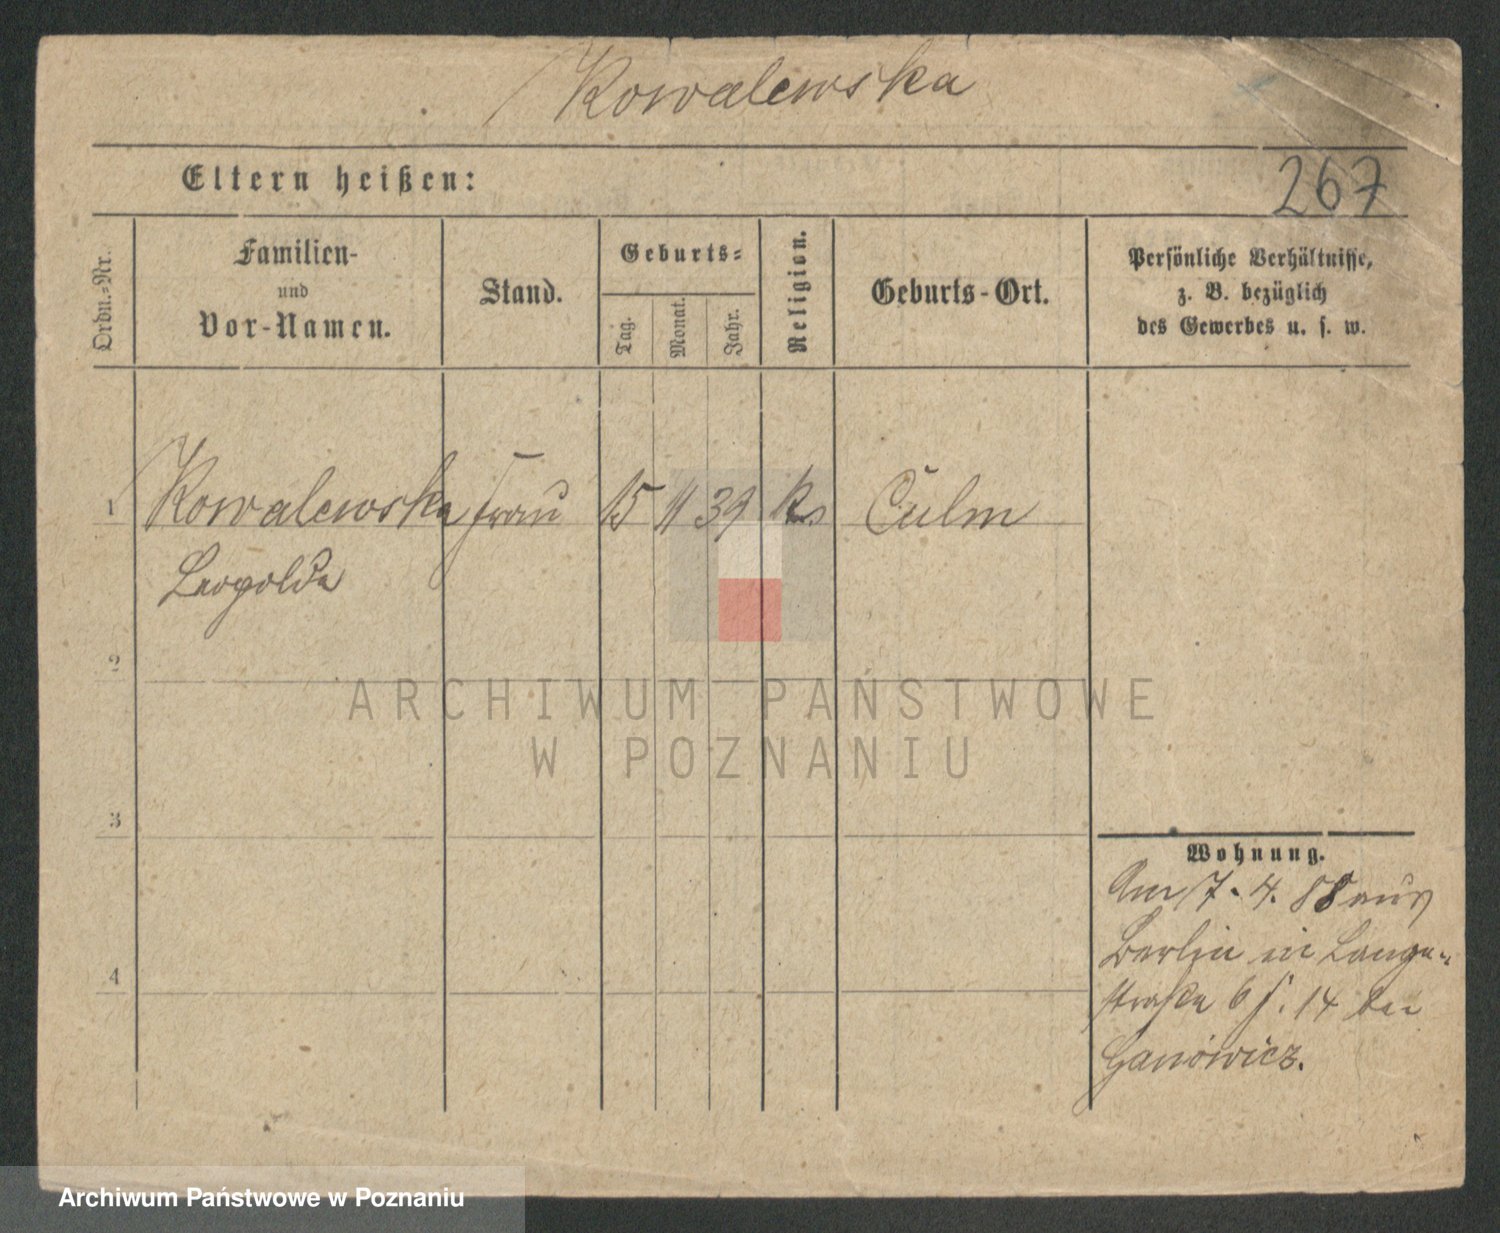 Kowalewska
Eltern heißen:
267
Ordn.=Nr.
Familien-
und
Vor-Namen.
Stand.
Geburts=
Tag.
Monat.
Jahr.
Religion.
Geburts-Ort.
Persönliche Verhältnisse,
z. B. bezüglich
des Gewerbes u. s. w.
1 Kowalewska Frau 15 11 39 Culm
Leopolde
2
3
4
Wohnung.
Am 7. 4. 88 aus
Berlin in Lange-
straße 6 14 bei
Ganowicz.
ARCHIWUM PAŃSTWOWE
W POZNANIU
Archiwum Państwowe w Poznaniu